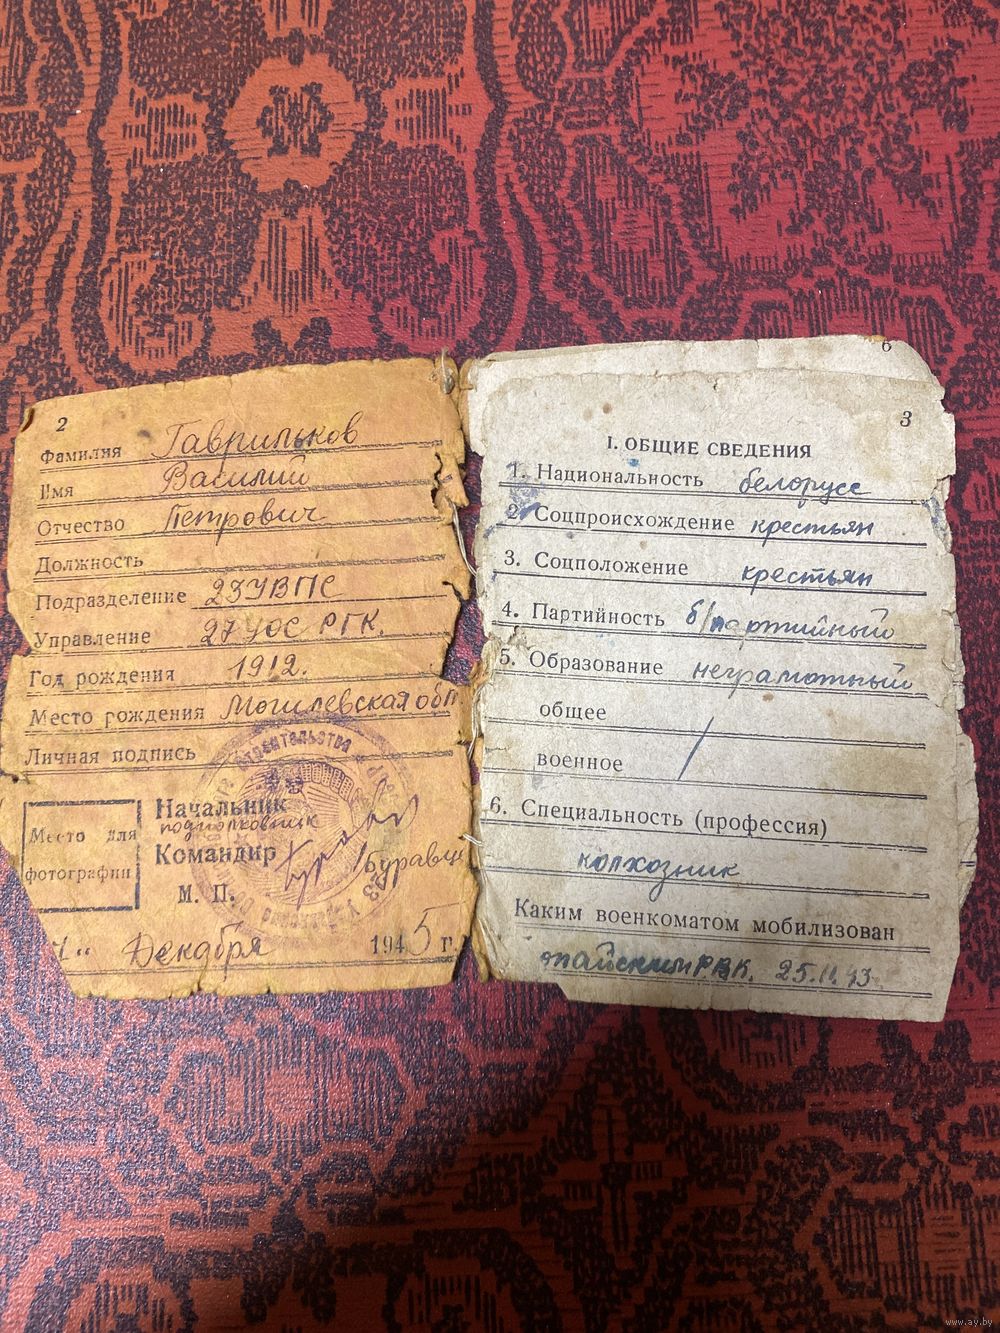 2
Фамилия Гаврильков
Имя Василий
Отчество Петрович
Должность
Подразделение 23УВПС
Управление 27 УОС РГК.
Год рождения 1912.
Место рождения Могилевская обл
Личная подпись
Место для
фотографии
Начальник
подполковник
Командир
М. П.
Декабря 1945 г.
6
3
I. ОБЩИЕ СВЕДЕНИЯ
1. Национальность белорусс
2. Соцпроисхождение крестьян
3. Соцположение крестьян
4. Партийность б/партийный
5. Образование неграмотный
общее
военное
6. Специальность (профессия)
колхозник
Каким военкоматом мобилизован
РВК. 25.11.43
www.ay.by